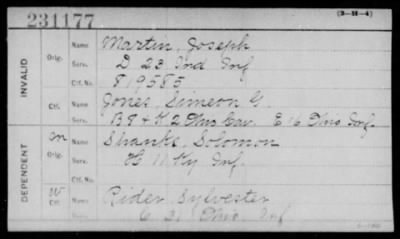 231177
(3-H-4)
INVALID
Orig.
Name Martin, Joseph
Serv. D 23 Ind Inf
Ctf. No. 819585
Ctf.
Name Jones, Simeon G.
Serv. B 8 & K 2 Ohio Cav. E 16 Ohio Inf.
DEPENDENT
Orig.
Name Shanks, Solomon
Serv. H 11 Ky Inf.
Ctf. No.
W
Ctf.
Name Rider, Sylvester
Serv. C 21 Ohio Inf